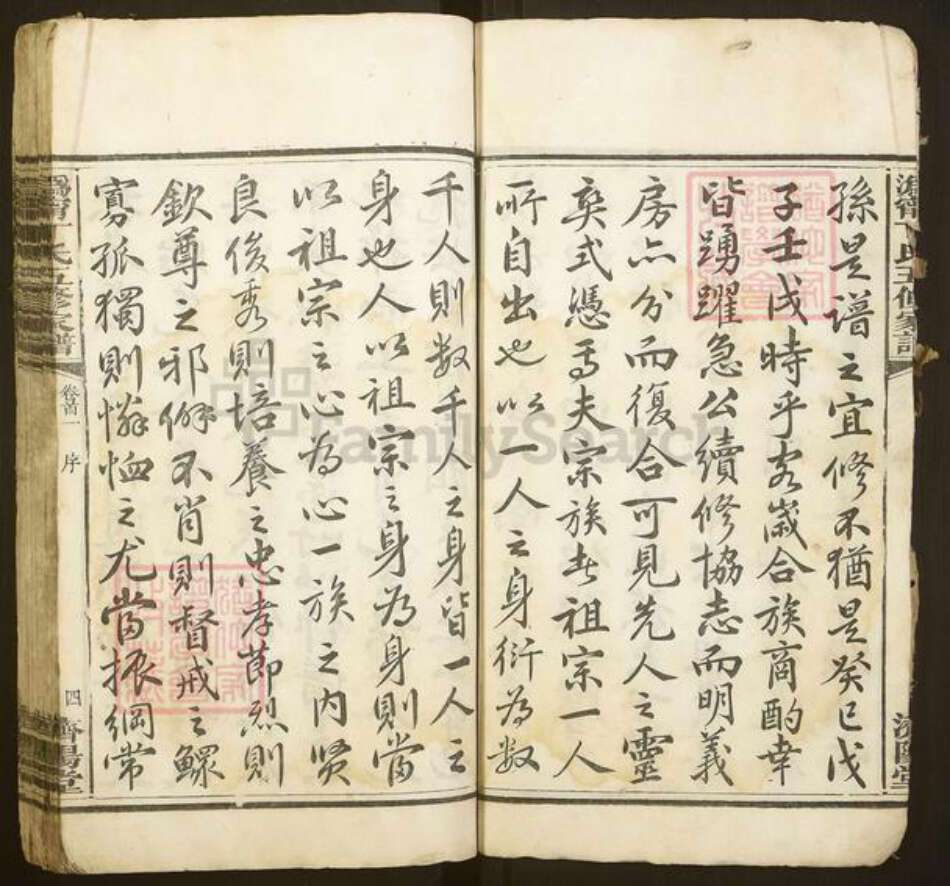 孫是譜之宜修不猶是癸巳戊
子壬戌時乎客歲合族商酌幸
皆踴躍急公續修協志而明義
房亦分而復合可見先人之靈
爽式憑焉夫宗族者祖宗一人
所自出也以一人之身衍為數
千人則数千人之身皆一人之
身也人以祖宗之身為身則當
以祖宗之心為心一族之内贤
良俊秀則培養之忠孝節烈則
欽尊之邪僻不肖則督戒之鰥
寡孤獨則憐恤之尤當振綱常
溈甯丁氏五修家譜
卷首一
序
四
濟陽堂
FamilySearch